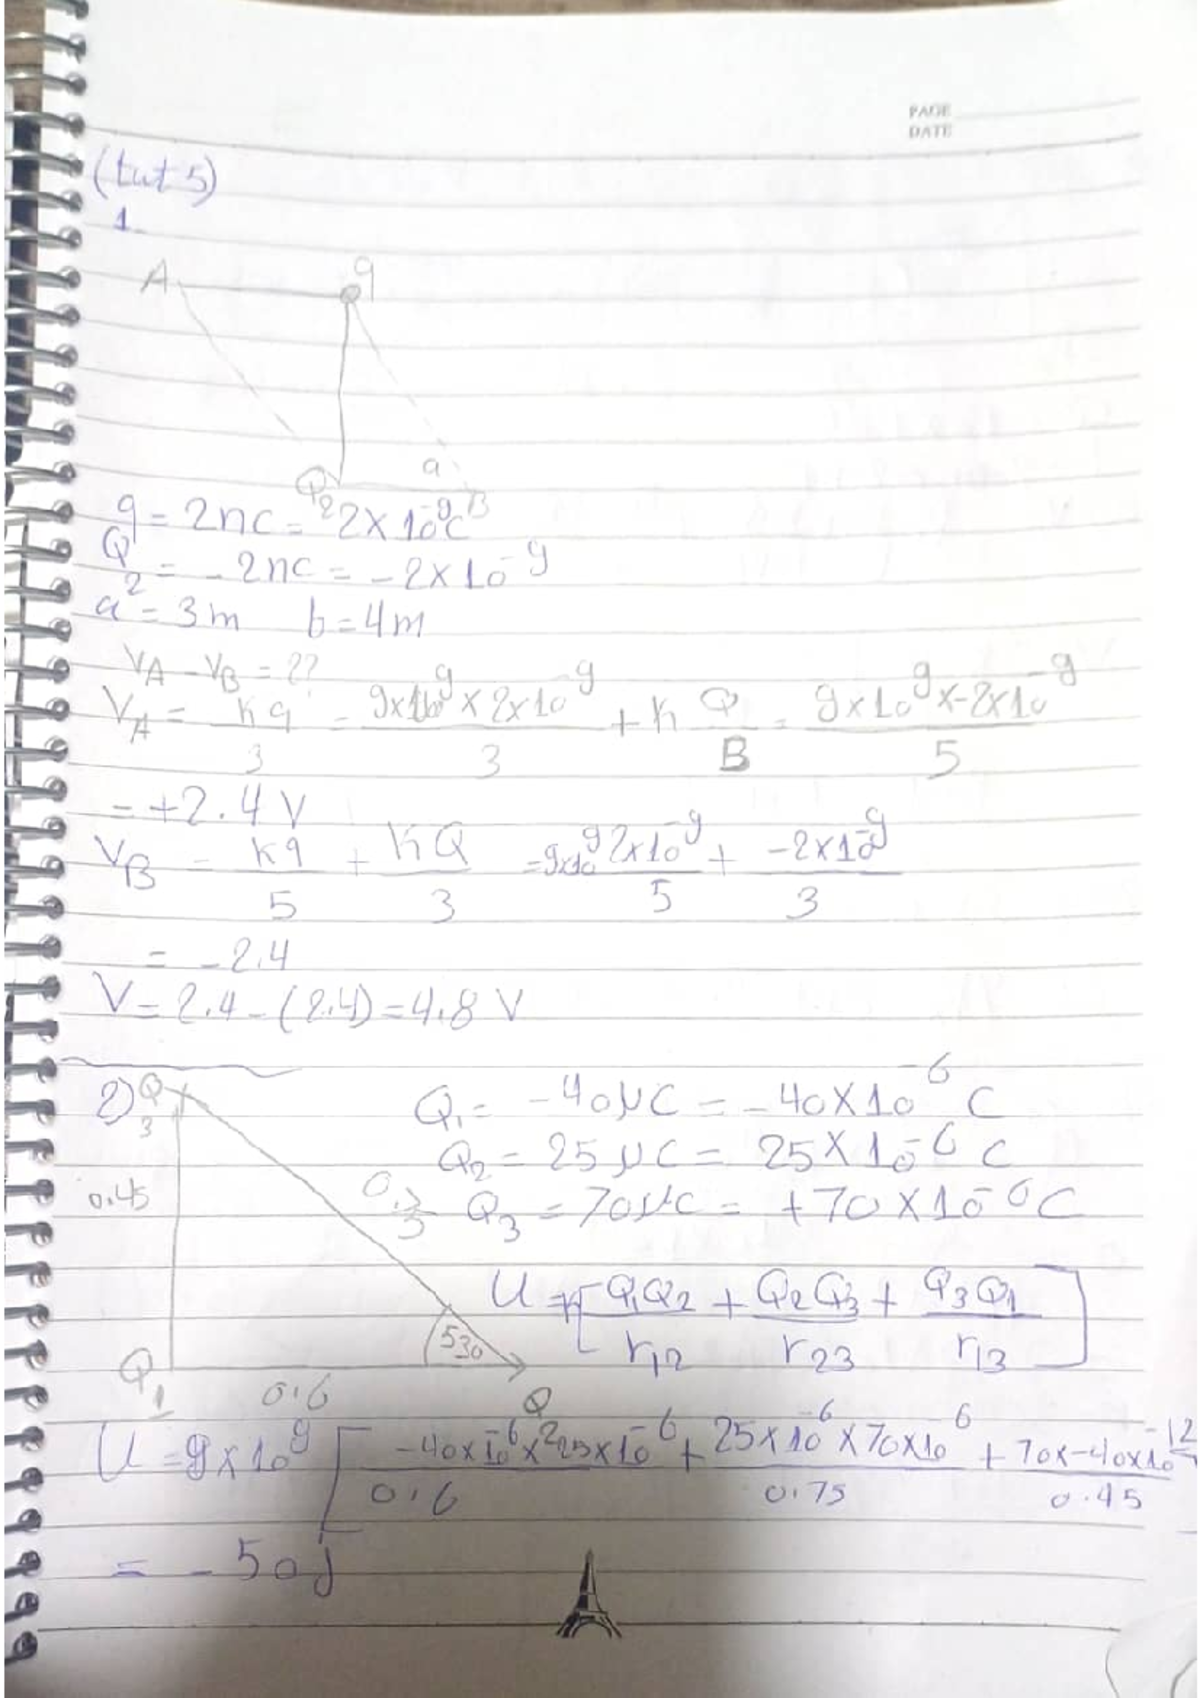 PAGE
DATE
(tut 5)
1.
A q
Q a B
q = 2nc = 2×10⁻⁹c
Q₂ = -2nc = -2×10⁻⁹
a = 3m b = 4m
VA - VB = ??
VA = Kq/3 = 9×10⁹ × 2×10⁻⁹/3 + K Q/B = 9×10⁹ × -2×10⁻⁹/5
= +2.4 V
VB = Kq/5 + KQ/3 = 9×10⁹ 2×10⁻⁹/5 + -2×10⁻⁹/3
= -2.4
V = 2.4 - (2.4) = 4.8 V
2) Q₃ Q₁ = -40μC = -40×10⁻⁶ C
Q₂ = 25μC = 25×10⁻⁶ C
0.45 Q₃ = 70μC = +70×10⁻⁶ C
U = k[Q₁Q₂/r₁₂ + Q₂Q₃/r₂₃ + Q₃Q₁/r₁₃]
530
Q₁ 0.6 Q₂
U = 9×10⁹ [-40×10⁻⁶ × 25×10⁻⁶/0.6 + 25×10⁻⁶ × 70×10⁻⁶/0.75 + 70×-40×10⁻¹²/0.45
= -50J